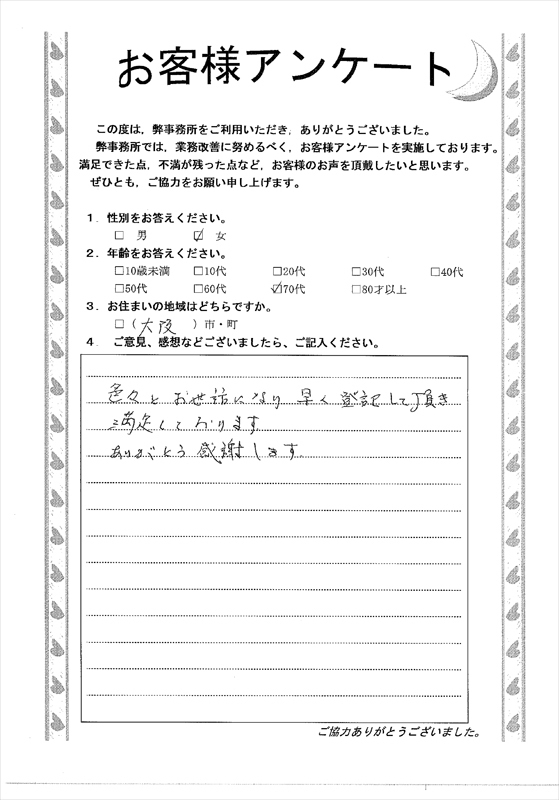 お客様アンケート
この度は，弊事務所をご利用いただき，ありがとうございました。
弊事務所では，業務改善に努めるべく，お客様アンケートを実施しております。
満足できた点，不満が残った点など，お客様のお声を頂戴したいと思います。
ぜひとも，ご協力をお願い申し上げます。
１．性別をお答えください。
□ 男 ☑ 女
２．年齢をお答えください。
□10歳未満 □10代 □20代 □30代 □40代
□50代 □60代 ☑70代 □80才以上
３．お住まいの地域はどちらですか。
□（大阪）市・町
４．ご意見、感想などございましたら、ご記入ください。
色々とお世話になり 早く登記して頂き
満足しております
ありがとう感謝します。
ご協力ありがとうございました。